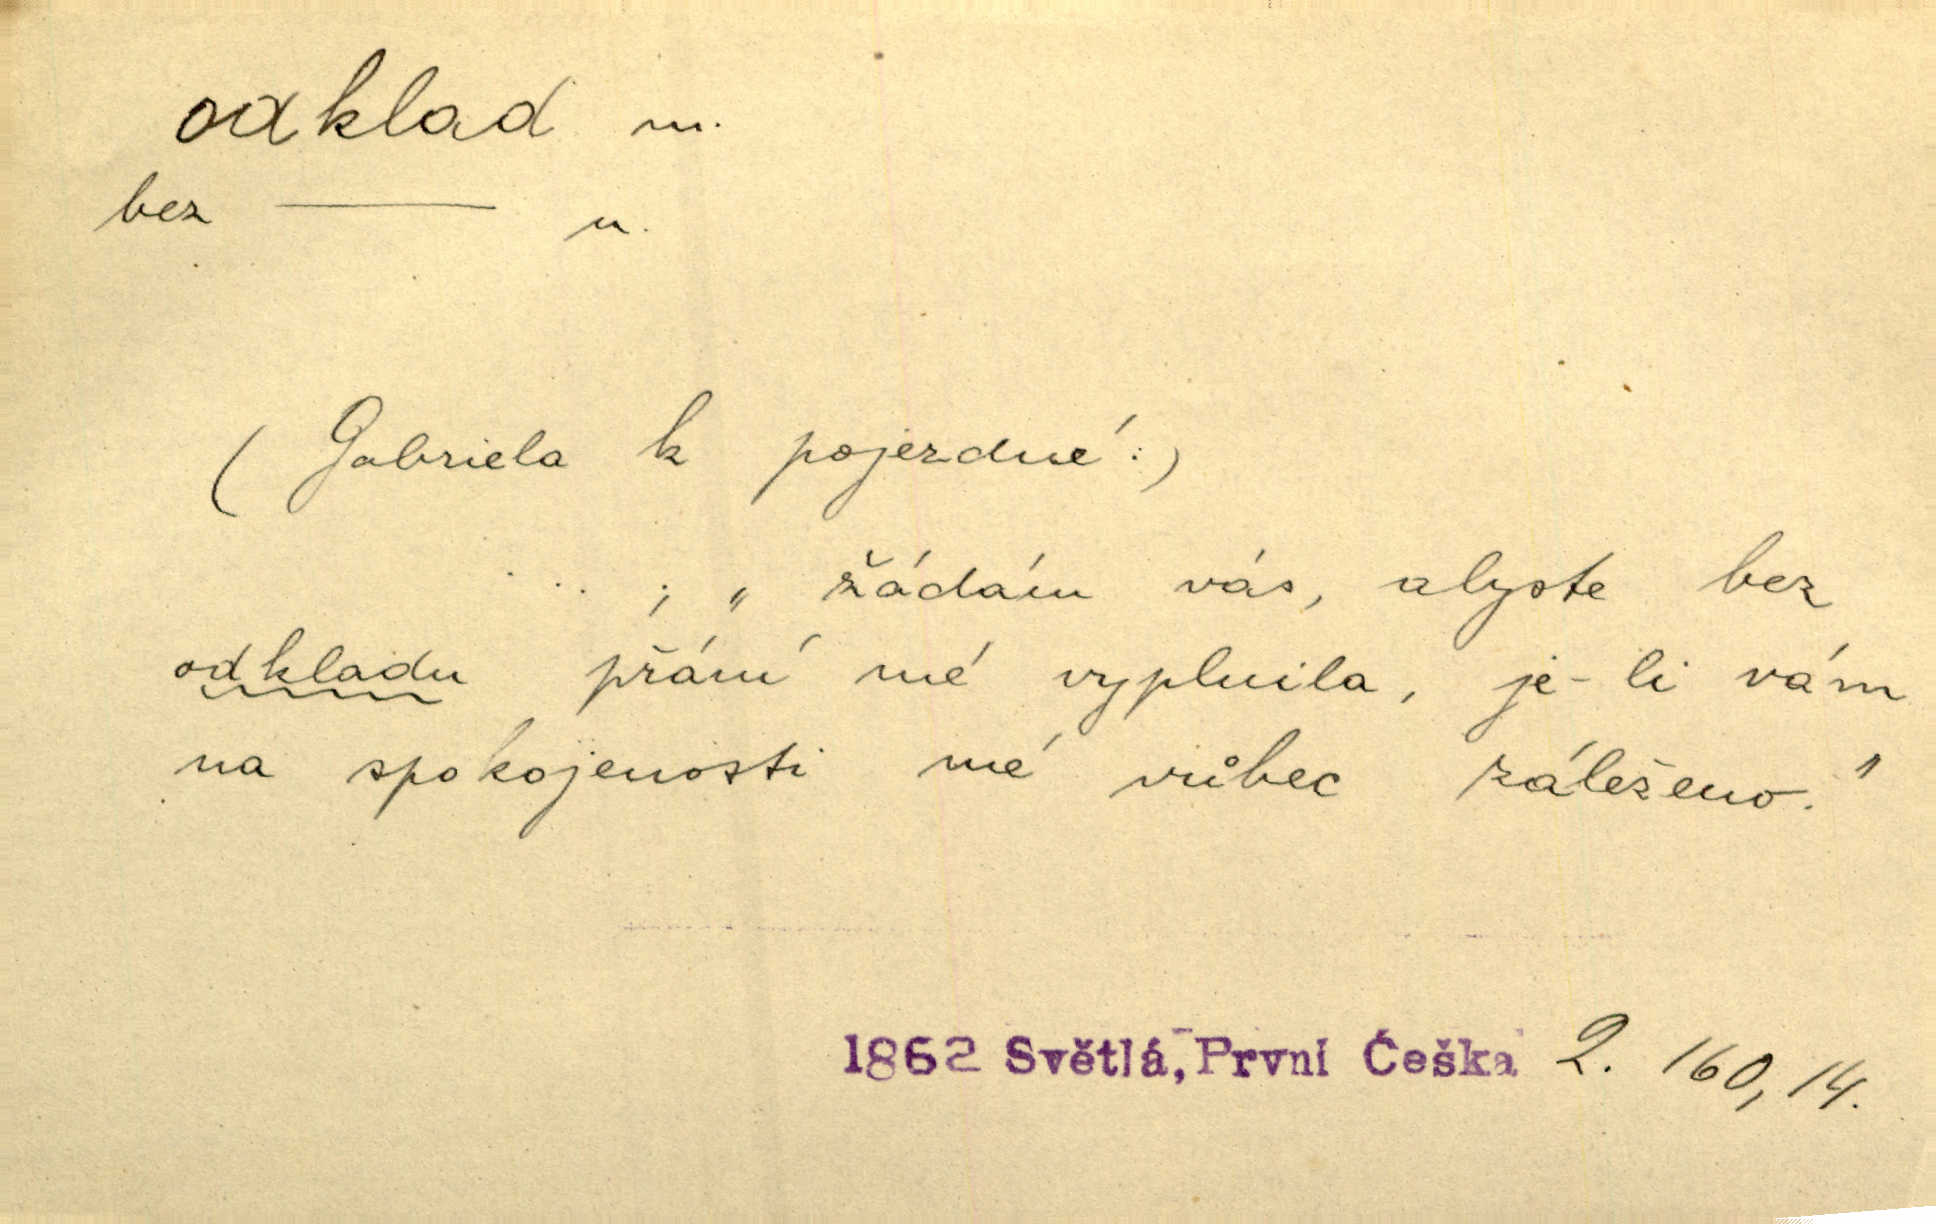 odklad m.
bez ——— u.
( Gabriela k pojezdné :)
... ; „ žádám vás, abyste bez
odkladu přání mé vyplnila, je-li vám
na spokojenosti mé vůbec záleženo."
1862 Světlá, První Češka 2. 160, 14.